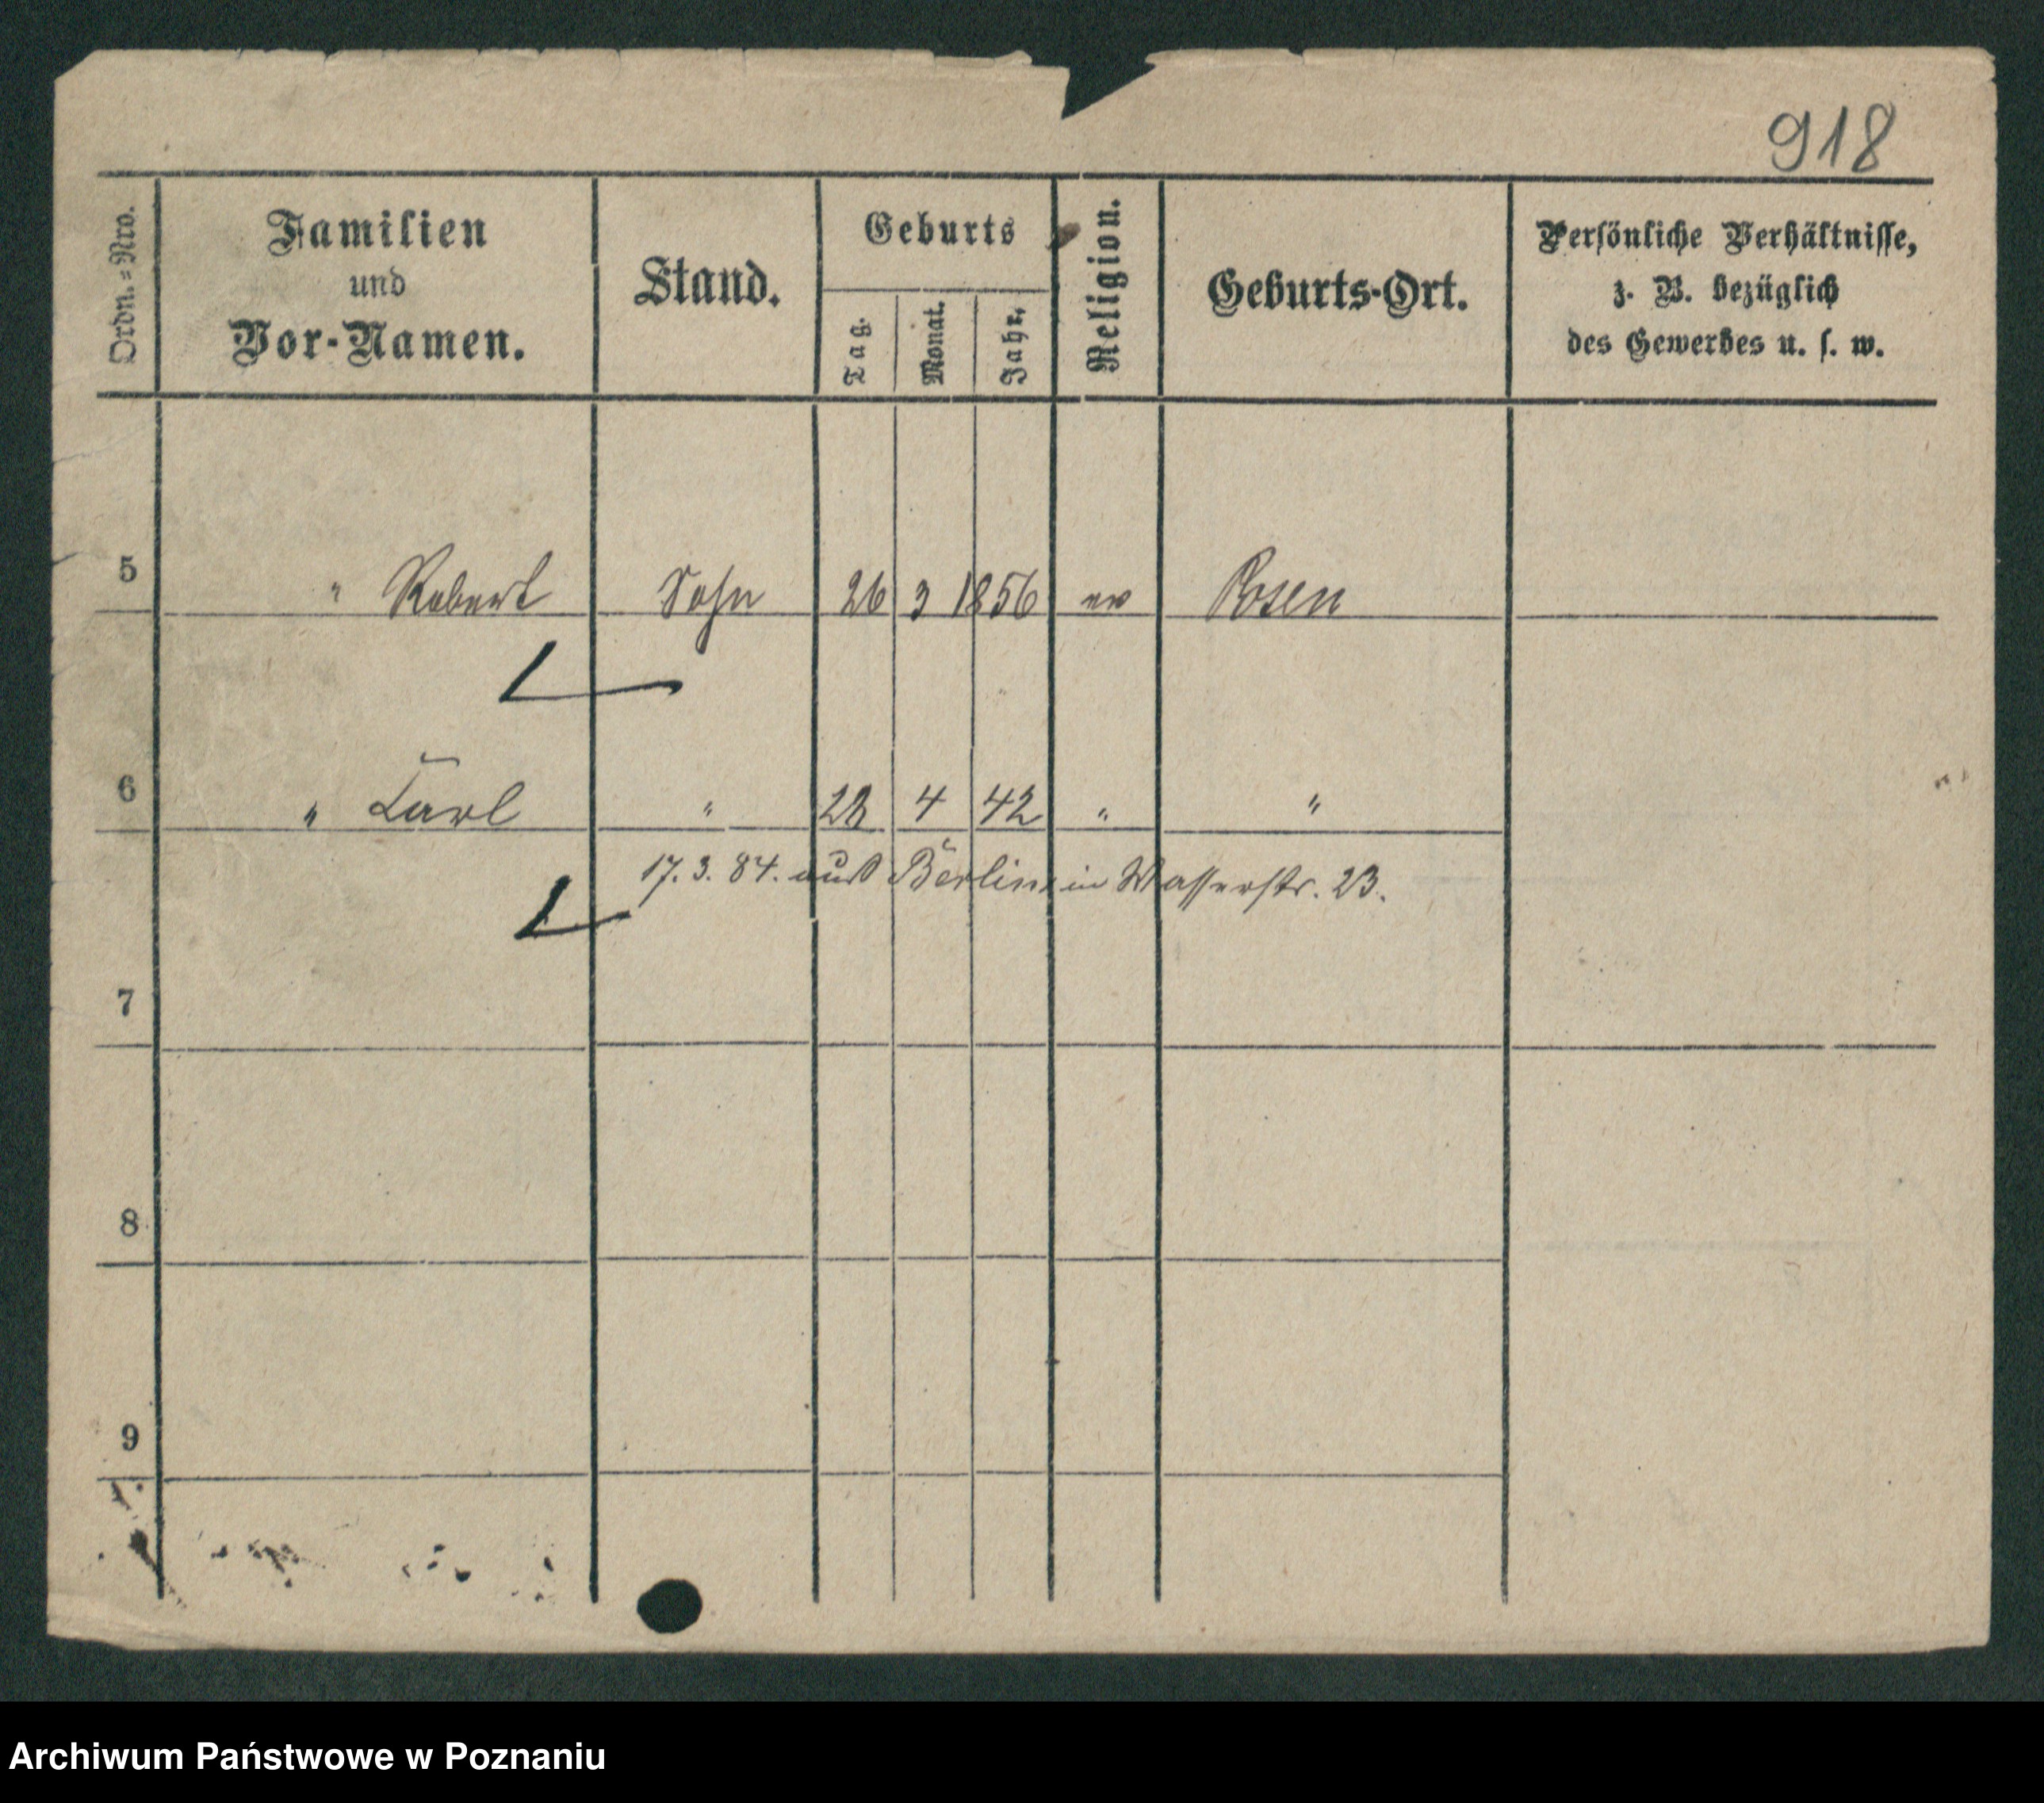 918
Ordn.-Nro.
Familien
und
Vor-Namen.
Stand.
Geburts
Tag.
Monat.
Jahr.
Religion.
Geburts-Ort.
Persönliche Verhältnisse,
z. B. bezüglich
des Gewerbes u. s. w.
5 " Robert Sohn 26 3 1856 ev Posen
6 " Carl " 28 4 42 " "
17. 3. 84. aus Berlin in Wasserstr. 23.
7
8
9
Archiwum Państwowe w Poznaniu